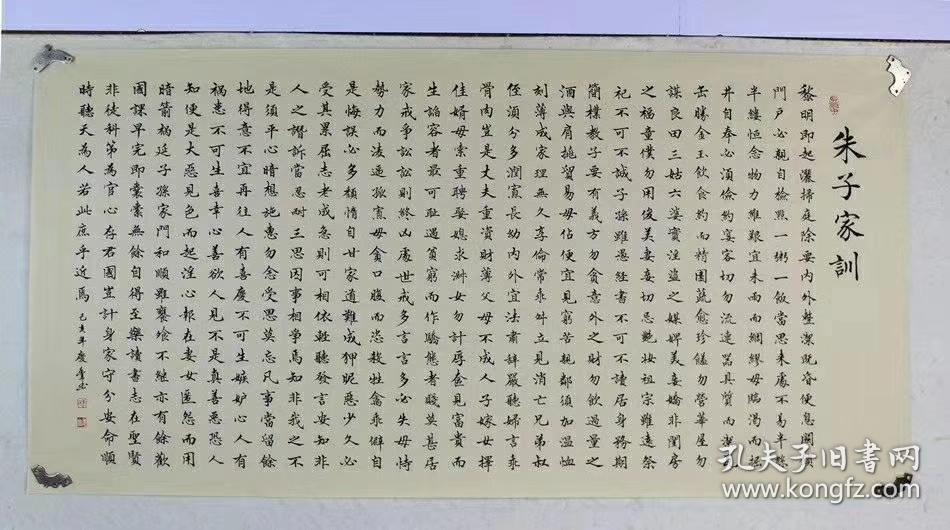 朱子家訓
黎明即起灑掃庭除要内外整潔既昏便息關鎖
門戶必親自檢點一粥一飯當思來處不易半絲
半縷恒念物力維艱宜未雨而綢繆毋臨渴而掘
井自奉必須儉約宴客切勿流連器具質而潔瓦
缶勝金玉飲食約而精園蔬愈珍饈勿營華屋勿
謀良田三姑六婆實淫盜之媒婢美妾嬌非閨房
之福童僕勿用俊美妻妾切忌艷妝祖宗雖遠祭
祀不可不誠子孫雖愚經書不可不讀居身務期
簡樸教子要有義方勿貪意外之財勿飲過量之
酒與肩挑貿易毋佔便宜見窮苦親鄰須加溫恤
刻薄成家理無久享倫常乖舛立見消亡兄弟叔
侄須分多潤寡長幼内外宜法肅辭嚴聽婦言乖
骨肉豈是丈夫重資財薄父母不成人子嫁女擇
佳婿毋索重聘娶媳求淑女勿計厚奩見富貴而
生諂容者最可恥遇貧窮而作驕態者賤莫甚居
家戒爭訟訟則終凶處世戒多言言多必失毋恃
勢力而淩逼孤寡毋貪口腹而恣殺牲禽乖僻自
是悔誤必多頹惰自甘家道難成狎昵惡少久必
受其累屈志老成急則可相依輕聽發言安知非
人之譖訴當忍耐三思因事相爭焉知非我之不
是須平心暗想施惠勿念受恩莫忘凡事當留餘
地得意不宜再往人有喜慶不可生嫉妒心人有
禍患不可生喜幸心善欲人見不是真善惡恐人
知便是大惡見色而起淫心報在妻女匿怨而用
暗箭禍延子孫家門和順雖饔飧不繼亦有餘歡
國課早完即囊橐無餘自得至樂讀書志在聖賢
非徒科第為官心存君國豈計身家守分安命順
時聽天為人若此庶乎近焉 己亥年慶
孔夫子旧书网
www.kongfz.com